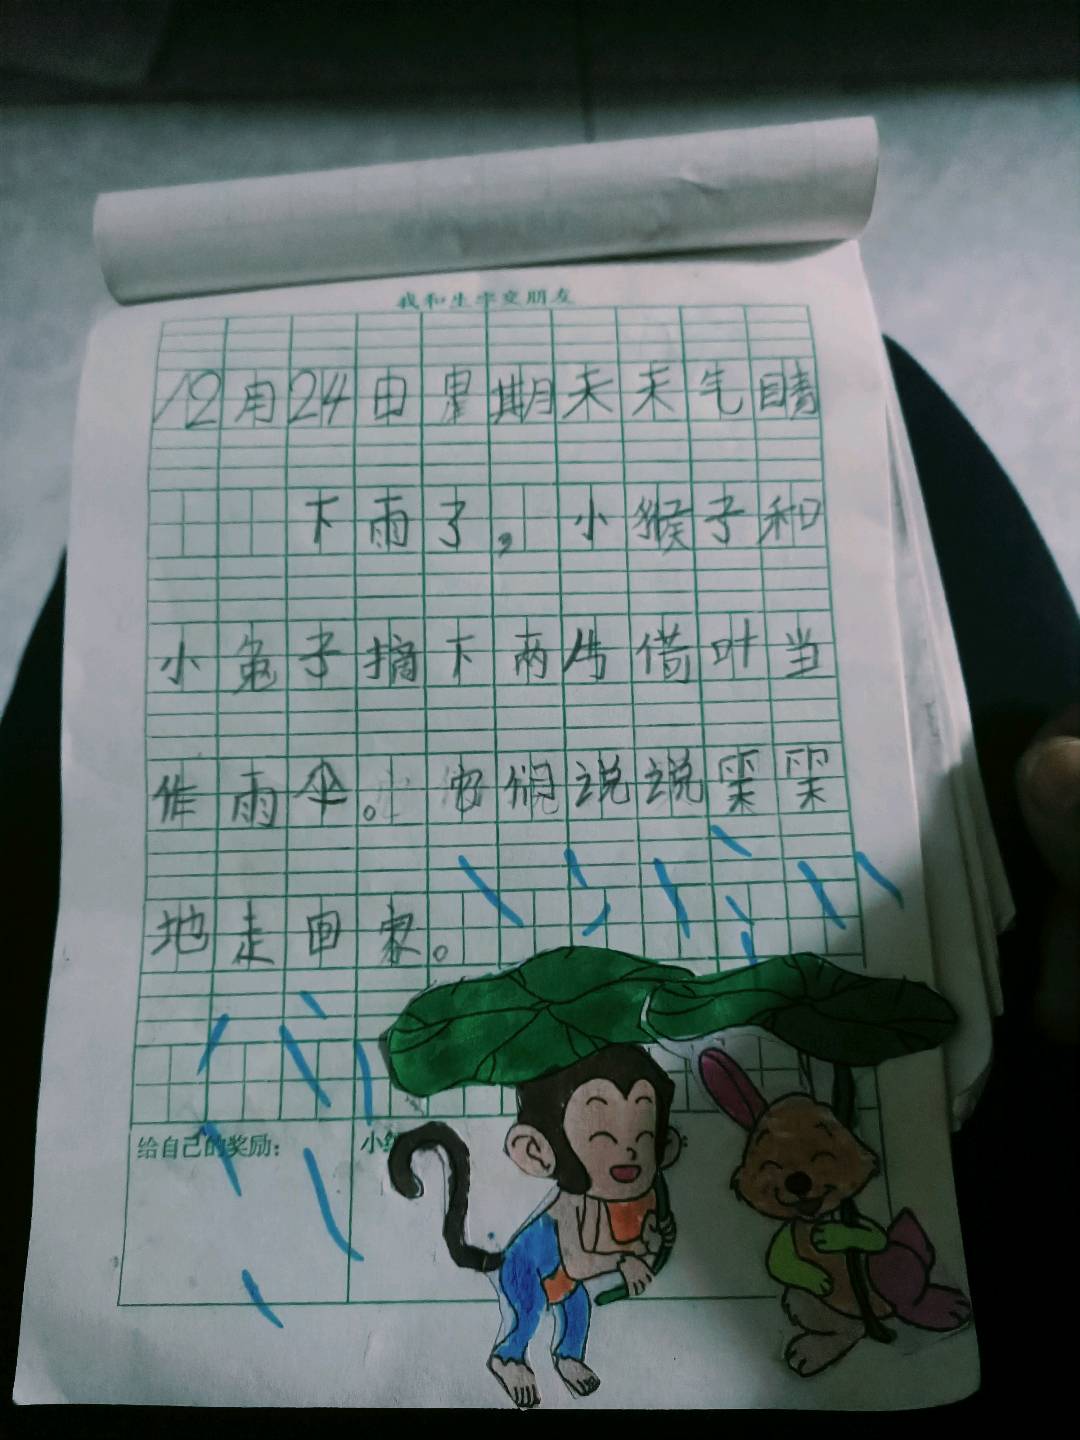 我和生字交朋友
12月24日星期天天气晴
下雨了,小猴子和
小兔子摘下两片借叶当
作雨伞。它们说说笑笑
地走回家。
给自己的奖励:
小红